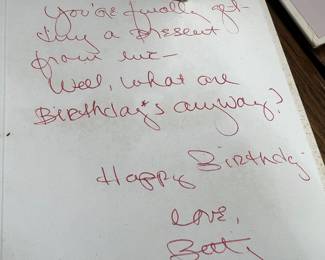 You're finally get-
ting a present
from me—
Well, what are
Birthday's anyway?
Happy Birthday
Love,
Betty